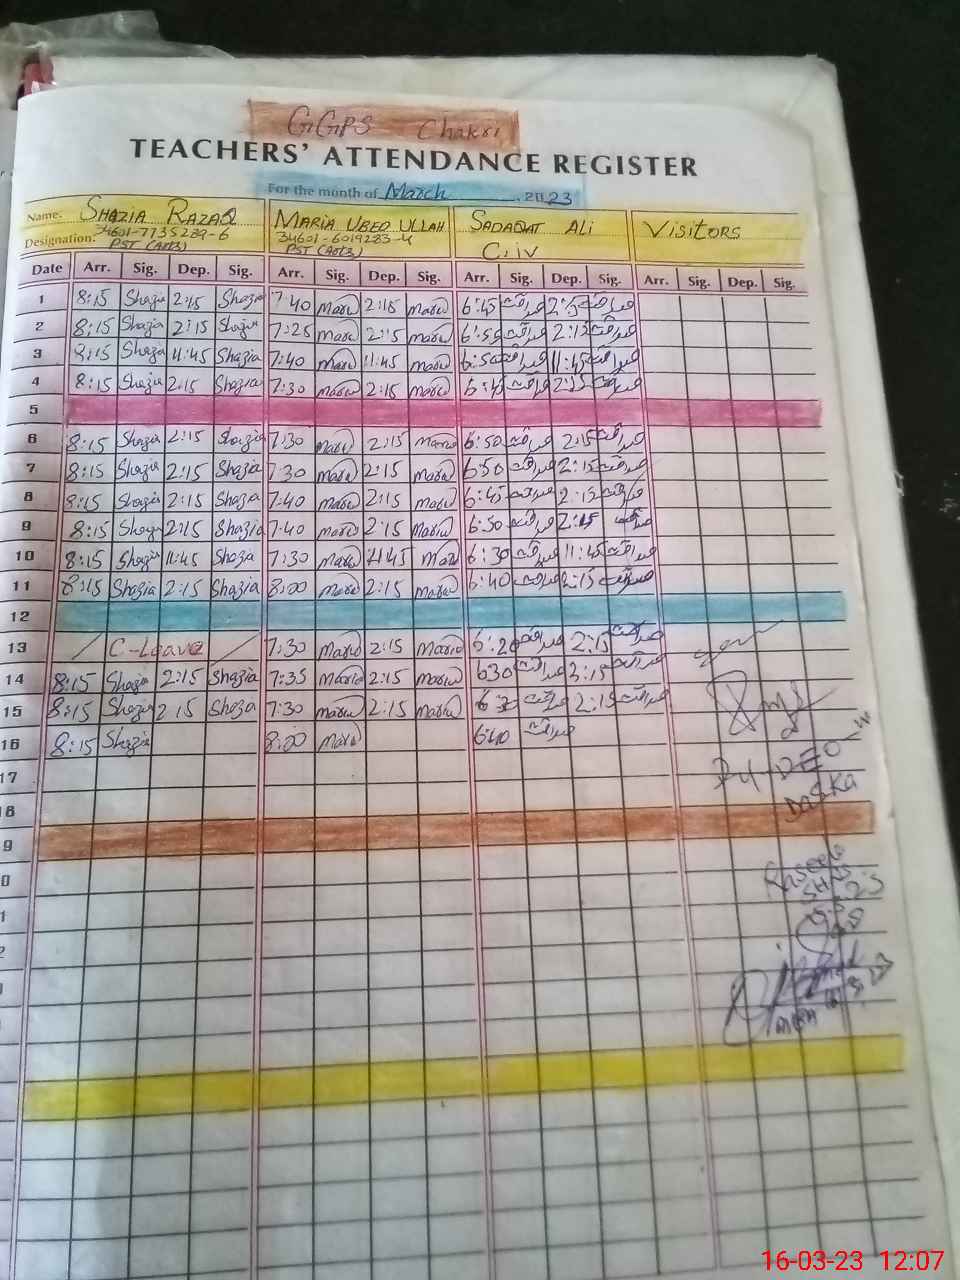 GGPS Chakri
TEACHERS' ATTENDANCE REGISTER
For the month of March 2023
Name. SHAZIA RAZAQ MARIA UBED ULLAH SADAQAT ALI VISITORS
Designation. 34601-7735289-6 34601-6019283-4 C, iv
PST (Arts) PST (Arts)
Date Arr. Sig. Dep. Sig. Arr. Sig. Dep. Sig. Arr. Sig. Dep. Sig. Arr. Sig. Dep. Sig.
1 8:15 Shazia 2:15 Shazia 7:40 Maria 2:15 Maria 6:45 صداقت 2:15 صداقت
2 8:15 Shazia 2:15 Shazia 7:25 Maria 2:15 Maria 6:55 صداقت 2:15 صداقت
3 8:15 Shazia 11:45 Shazia 7:40 Maria 11:45 Maria 6:50 صداقت 11:45 صداقت
4 8:15 Shazia 2:15 Shazia 7:30 Maria 2:15 Maria 6:45 صداقت 2:15 صداقت
5
6 8:15 Shazia 2:15 Shazia 7:30 Maria 2:15 Maria 6:50 صداقت 2:15 صداقت
7 8:15 Shazia 2:15 Shazia 7:30 Maria 2:15 Maria 6:50 صداقت 2:15 صداقت
8 8:15 Shazia 2:15 Shazia 7:40 Maria 2:15 Maria 6:45 صداقت 2:15 صداقت
9 8:15 Shazia 2:15 Shazia 7:40 Maria 2:15 Maria 6:50 صداقت 2:15 صداقت
10 8:15 Shazia 11:45 Shazia 7:30 Maria 11:45 Maria 6:30 صداقت 11:45 صداقت
11 8:15 Shazia 2:15 Shazia 8:20 Maria 2:15 Maria 6:40 صداقت 2:15 صداقت
12
13 C-Leave 7:30 Maria 2:15 Maria 6:20 صداقت 2:15 صداقت
14 8:15 Shazia 2:15 Shazia 7:35 Maria 2:15 Maria 630 صداقت 2:15 صداقت
15 8:15 Shazia 2 15 Shazia 7:30 Maria 2:15 Maria 6 30 صداقت 2:15 صداقت
16 8:15 Shazia 8:20 Maria 6:40 صداقت
17
Dy-DEO-W
18
Daska
9
0
1
2
16-03-23 12:07